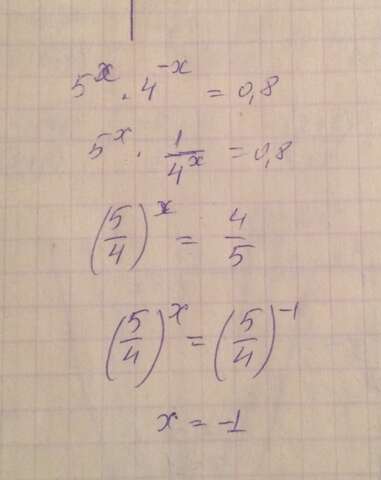 5^x · 4^-x = 0,8
5^x · 1/4^x = 0,8
(5/4)^x = 4/5
(5/4)^x = (5/4)^-1
x = -1